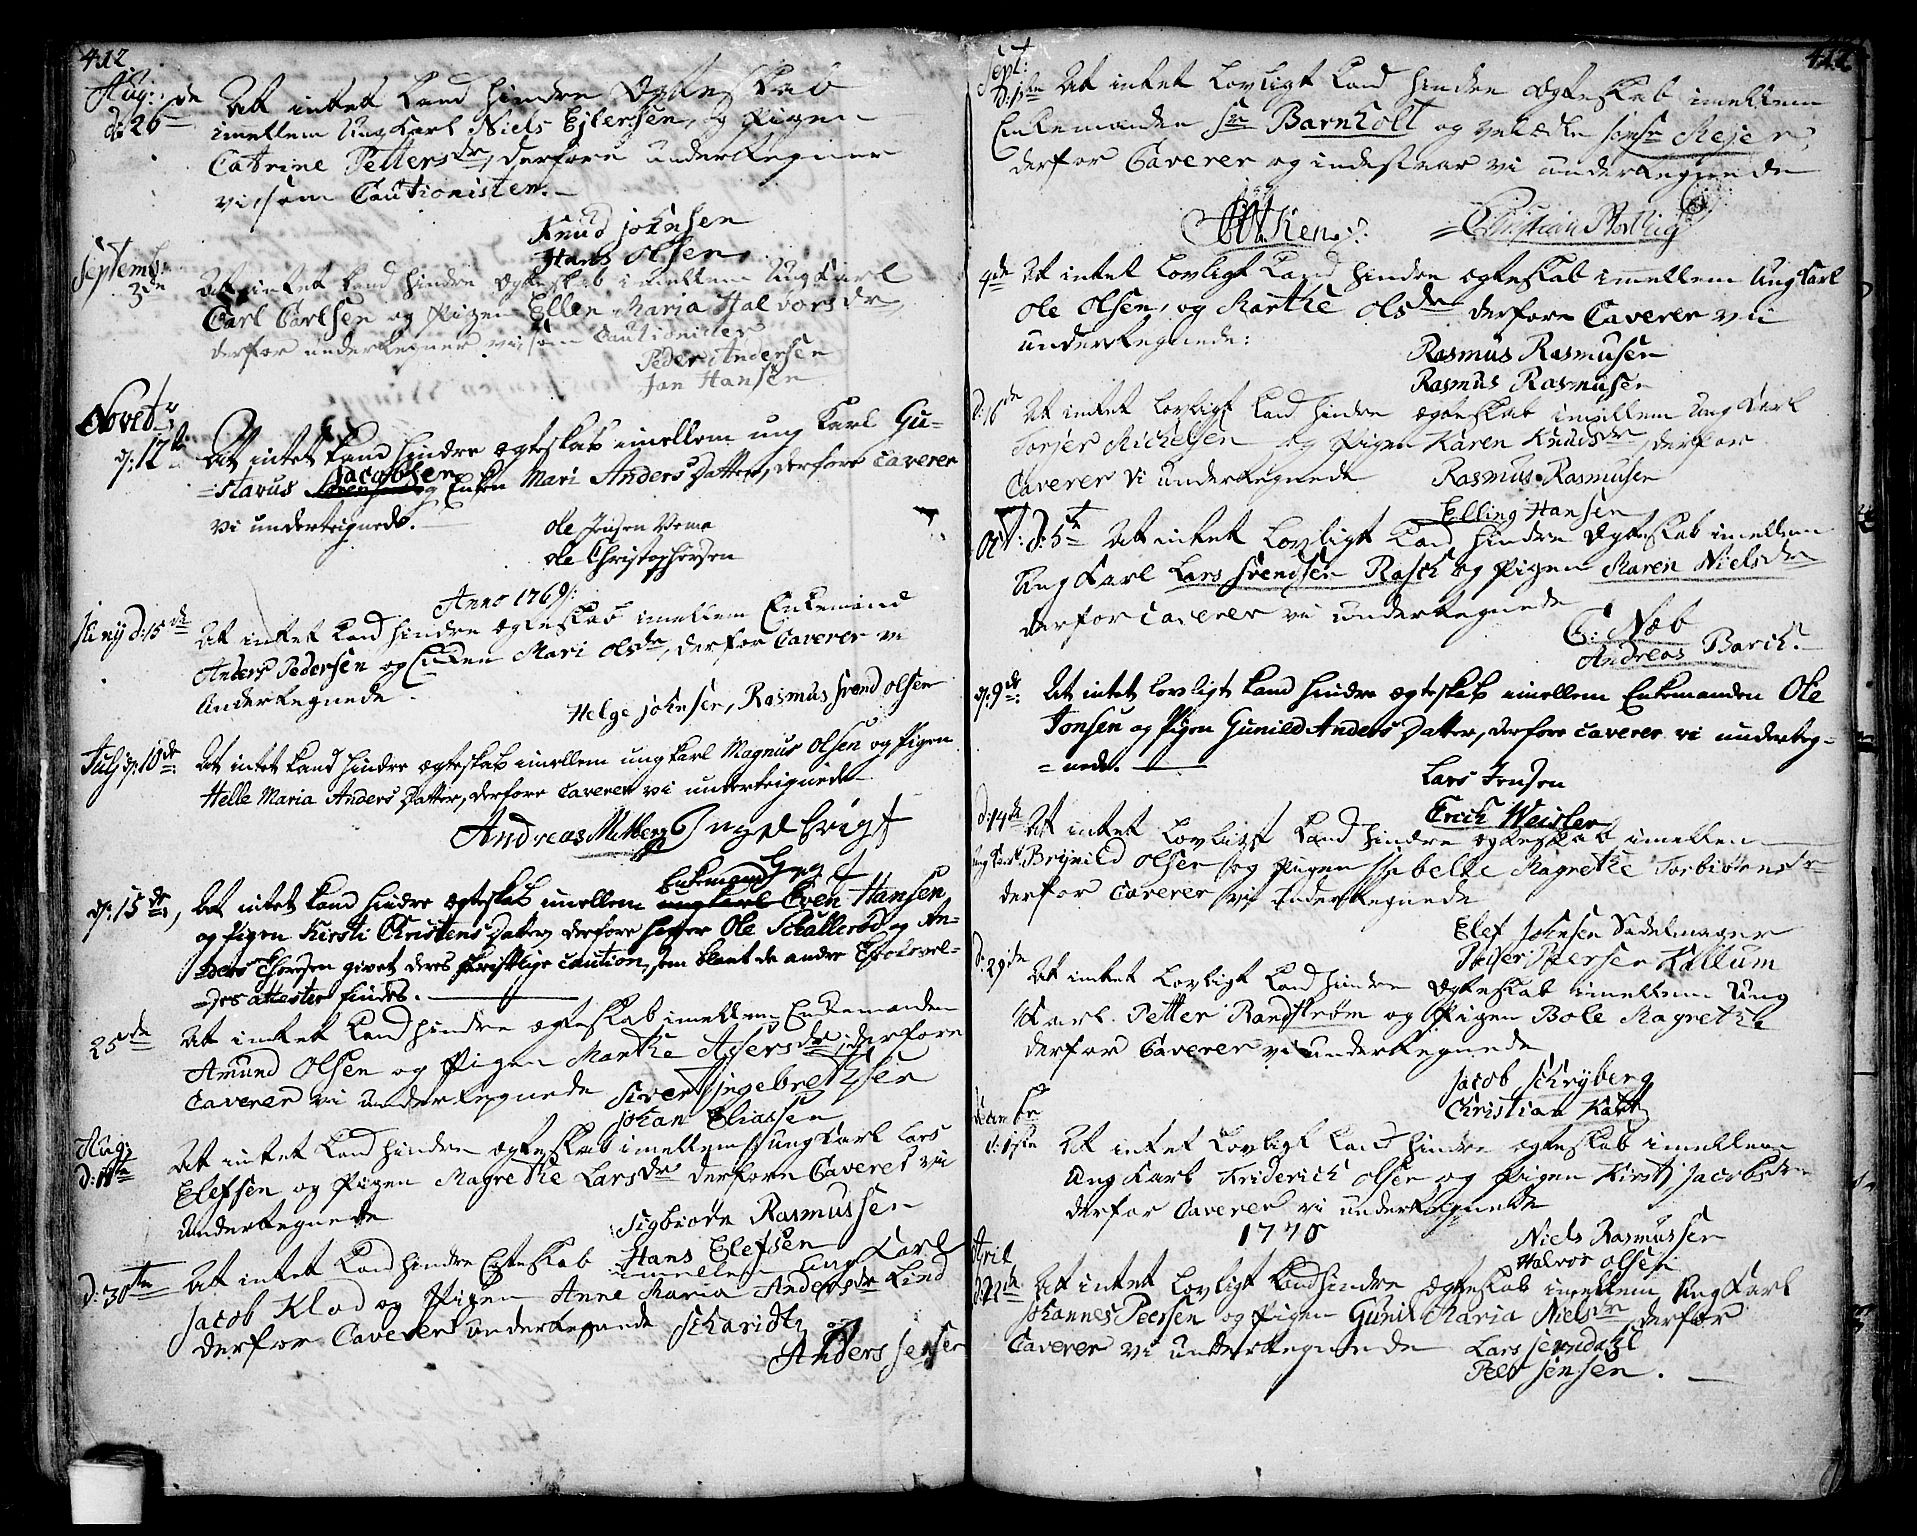 412
Aug:
d: 26de At intet Kand hindre Egteskab
imellem Ung Karl Niels Ejlersen, og Pigen
Catrine Pettersdr, derfore underteigner
vi som Cautionister.
Knud Johnsen
Hans Olsen
Septemb:
3de At intet kand hindre Egteskab imellem Ung Karl
Carl Carlsen og Pigen Ellen Maria Halvorsdr,
derfor underteigner vi som Cautionister
Peder Andersen
Jan Hansen
Novebr
d: 12te At intet kand hindre Egteskab imellem ung Karl Gu-
=stavus Jacobsen og Enken Mari Anders Datter, derfore caverer
vi underteignede.
Ole Jensen Vema
Ole Christophersen
Anno 1769:
Juny d: 15de At intet Kand hindre Egteskab imellem Enkemand
Anders Pedersen og Enken Mari Olsdr, derfor Caverer vi
Underteignede
Helge Johnsen, Rasmus Svend Olsen
July d: 10de At intet kand hindre egteskab imellem ung karl Magnus Olsen og Pigen
Helle Maria Anders Datter, derfore caverer vi underteignede
Andreas Ingelbrigt
d: 15de, At intet kand hindre egteskab imellem Enkemand ung karl Even Hansen
og Pigen Kirsti Christens Datter, derfore hafver Ole Schallerød og An-
=ders Thorsen givet deres skriftlige caution, som blant de andre
=des attester findes.
25de At intet Kand hindre egteskab imellem Enkemanden
Amund Olsen og Pigen Marthe Asersdr, derfore
Caverer vi underteignede Sivert Ingebretsen
Johan Eliassen
Aug:
d: 11te At intet Kand hindre egteskab imellem ung Karl Lars
Elefsen og Pigen Magrethe Larsdr derfore Caverer vi
Underteignede
Sigbiørn Rasmussen
Hans Elefsen
d: 30te At intet Kand hindre Egteskab imellem Ung Karl
Jacob Klod og Pigen Anne Maria Andersdr Lind
derfor Caverer underteignede Scharidt og
Anders Jensen
412
Sept:
d: 1ste At intet Lovligt Kand hindre Egteskab imellem
Enkemanden Sr Barnholt og Jomfr Mejer,
derfor Caverer og indestaar vi underteignede
Christian
4de At intet Lovligt Kand hindre egteskab imellem Ung Karl
Ole Olsen, og Marthe Olsdr derfore Caverer vii
underteignede:
Rasmus Rasmusen
Rasmus Rasmusen
d: 16de At intet Lovligt Kand hindre egteskab imellem Ung Karl
Torjer Michelsen og Pigen Karen Knudsdr derfor
Caverer vi underteignede
Rasmus Rasmusen
Elling Hansen
Oct: d: 5te At intet Lovligt Kand hindre Egteskab imellem
Ung Karl Lars Svendsen Rasch og Pigen Maren Nielsdr
derfor caverer vi underteignede
C: Næb
Andreas Barch.
d: 9de At intet lovligt kand hindre egteskab imellem Enkemanden Ole
Jonsen og Pigen Gunild Anders Datter, derfore caverer vi underteg-
=nede.
Lars Jensen
Erich Weisler
d: 14de At intet Lovligt Kand hindre Egteskab imellem
Ung Karl Brynild Olsen og Pigen Isebelle Magrethe Torbiørnsdr
derfor Caverer vi underteignede
Elef Johnsen Sadelmager
Peder Peersen Kallum
d: 29de At intet Lovligt Kand hindre Egteskab imellem Ung
Karl Petter Randstrøm og Pigen Bole Magrethe
derfor Caverer vi underteignede
Jacob Schryberg
Christian Kahr
d: 1ste At intet Lovligt Kand hindre egteskab imellem
Ung Karl Friderich Olsen og Pigen Kirsti Jacobsdr
derfor Caverer vi underteignede
1770
Niels Rasmussen
Halvor Olsen
April
d: 22de At intet Lovligt Kand hindre egteskab imellem Ung Karl
Johannes Peersen og Pigen Gunil Maria Nielsdr derfor
Caverer vi underteignede
Lars Svendahl
Peer Jensen.